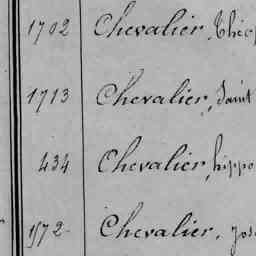 1702 Chevalier, Théop
1713 Chevalier, Saint
434 Chevalier, hippo
1572 Chevalier, Jos